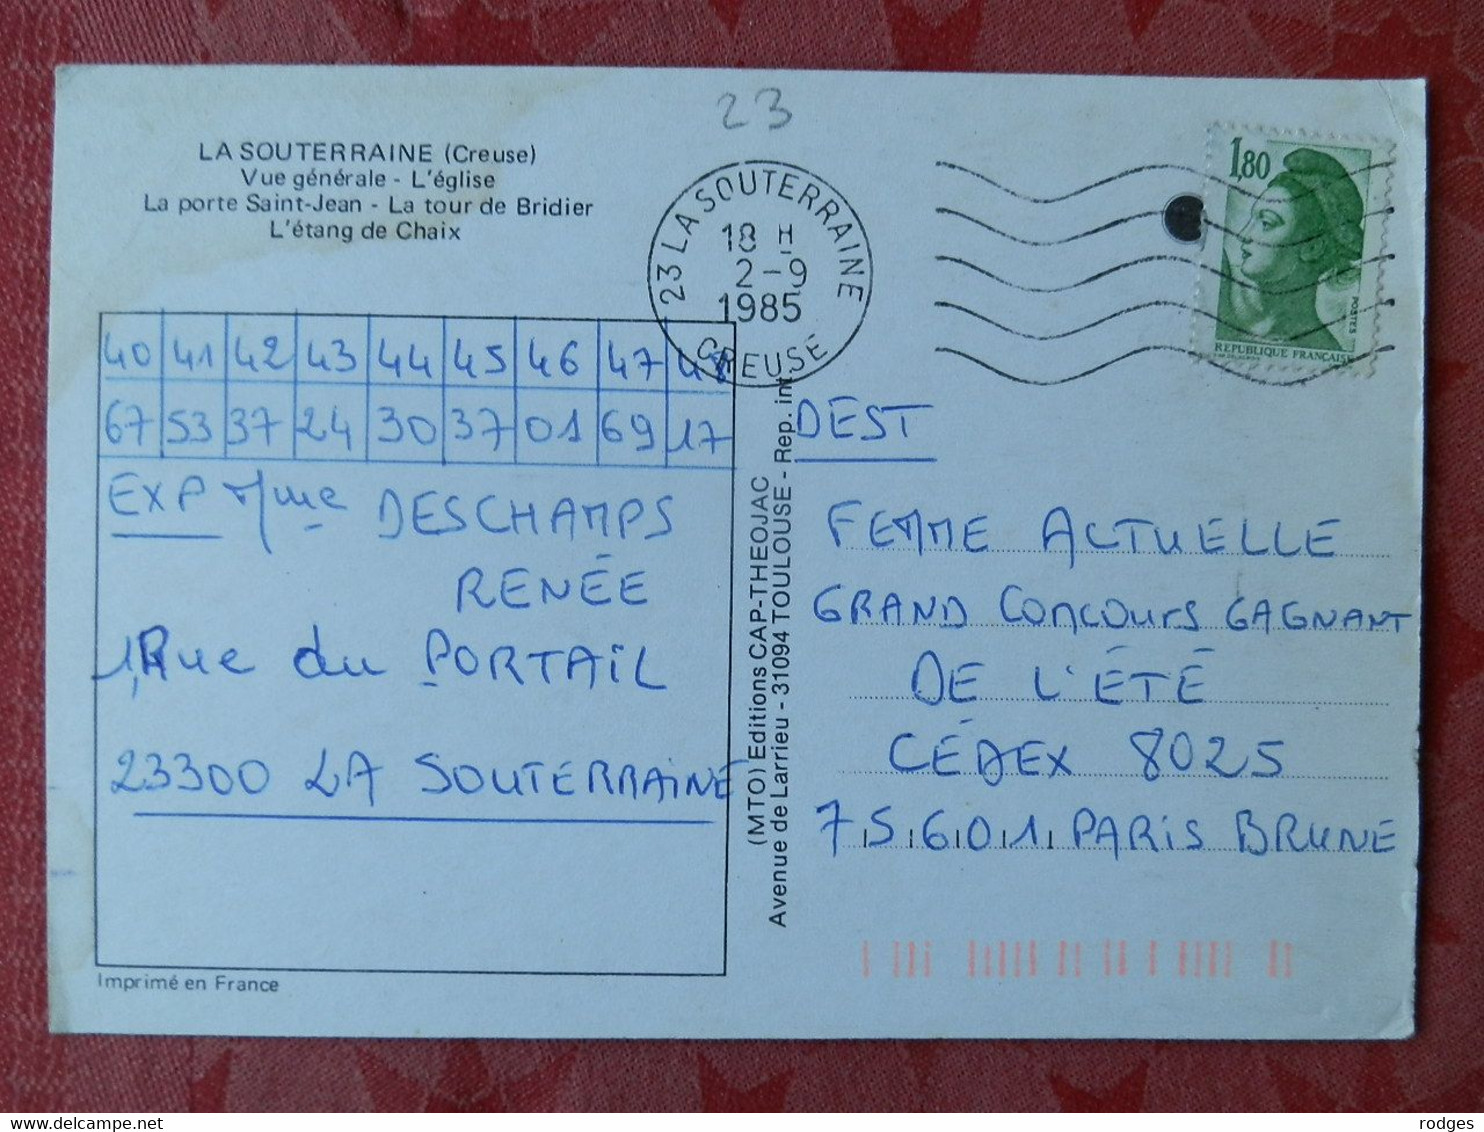 23
LA SOUTERRAINE (Creuse)
Vue générale - L'église
La porte Saint-Jean - La tour de Bridier
L'étang de Chaix
23 LA SOUTERRAINE
18 H
2-9
1985
CREUSE
1,80
POSTES
REPUBLIQUE FRANÇAISE
40 41 42 43 44 45 46 47 48
67 53 37 24 30 37 01 69 17
EXP Mme DESCHAMPS
RENÉE
1, Rue du PORTAIL
23300 LA SOUTERRAINE
Imprimé en France
(MTO) Editions CAP-THEOJAC
Avenue de Larrieu - 31094 TOULOUSE - Rep. int
DEST
FEMME ACTUELLE
GRAND CONCOURS GAGNANT
DE L'ÉTÉ
CÉDEX 8025
75601 PARIS BRUNE
rodges